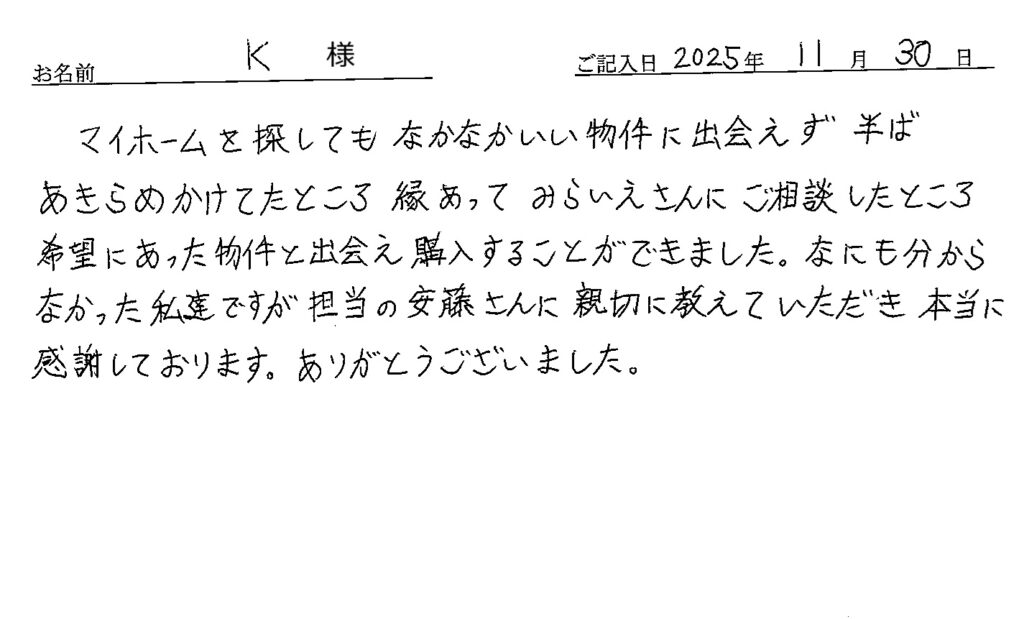 お名前 K 様 ご記入日 2025年 11月 30日
マイホームを探しても なかなかいい物件に出会えず 半ば
あきらめかけてたところ 縁あって みらいえさんに ご相談したところ
希望にあった物件と出会え 購入することができました。なにも分から
なかった私達ですが担当の安藤さんに 親切に教えていただき 本当に
感謝しております。ありがとうございました。